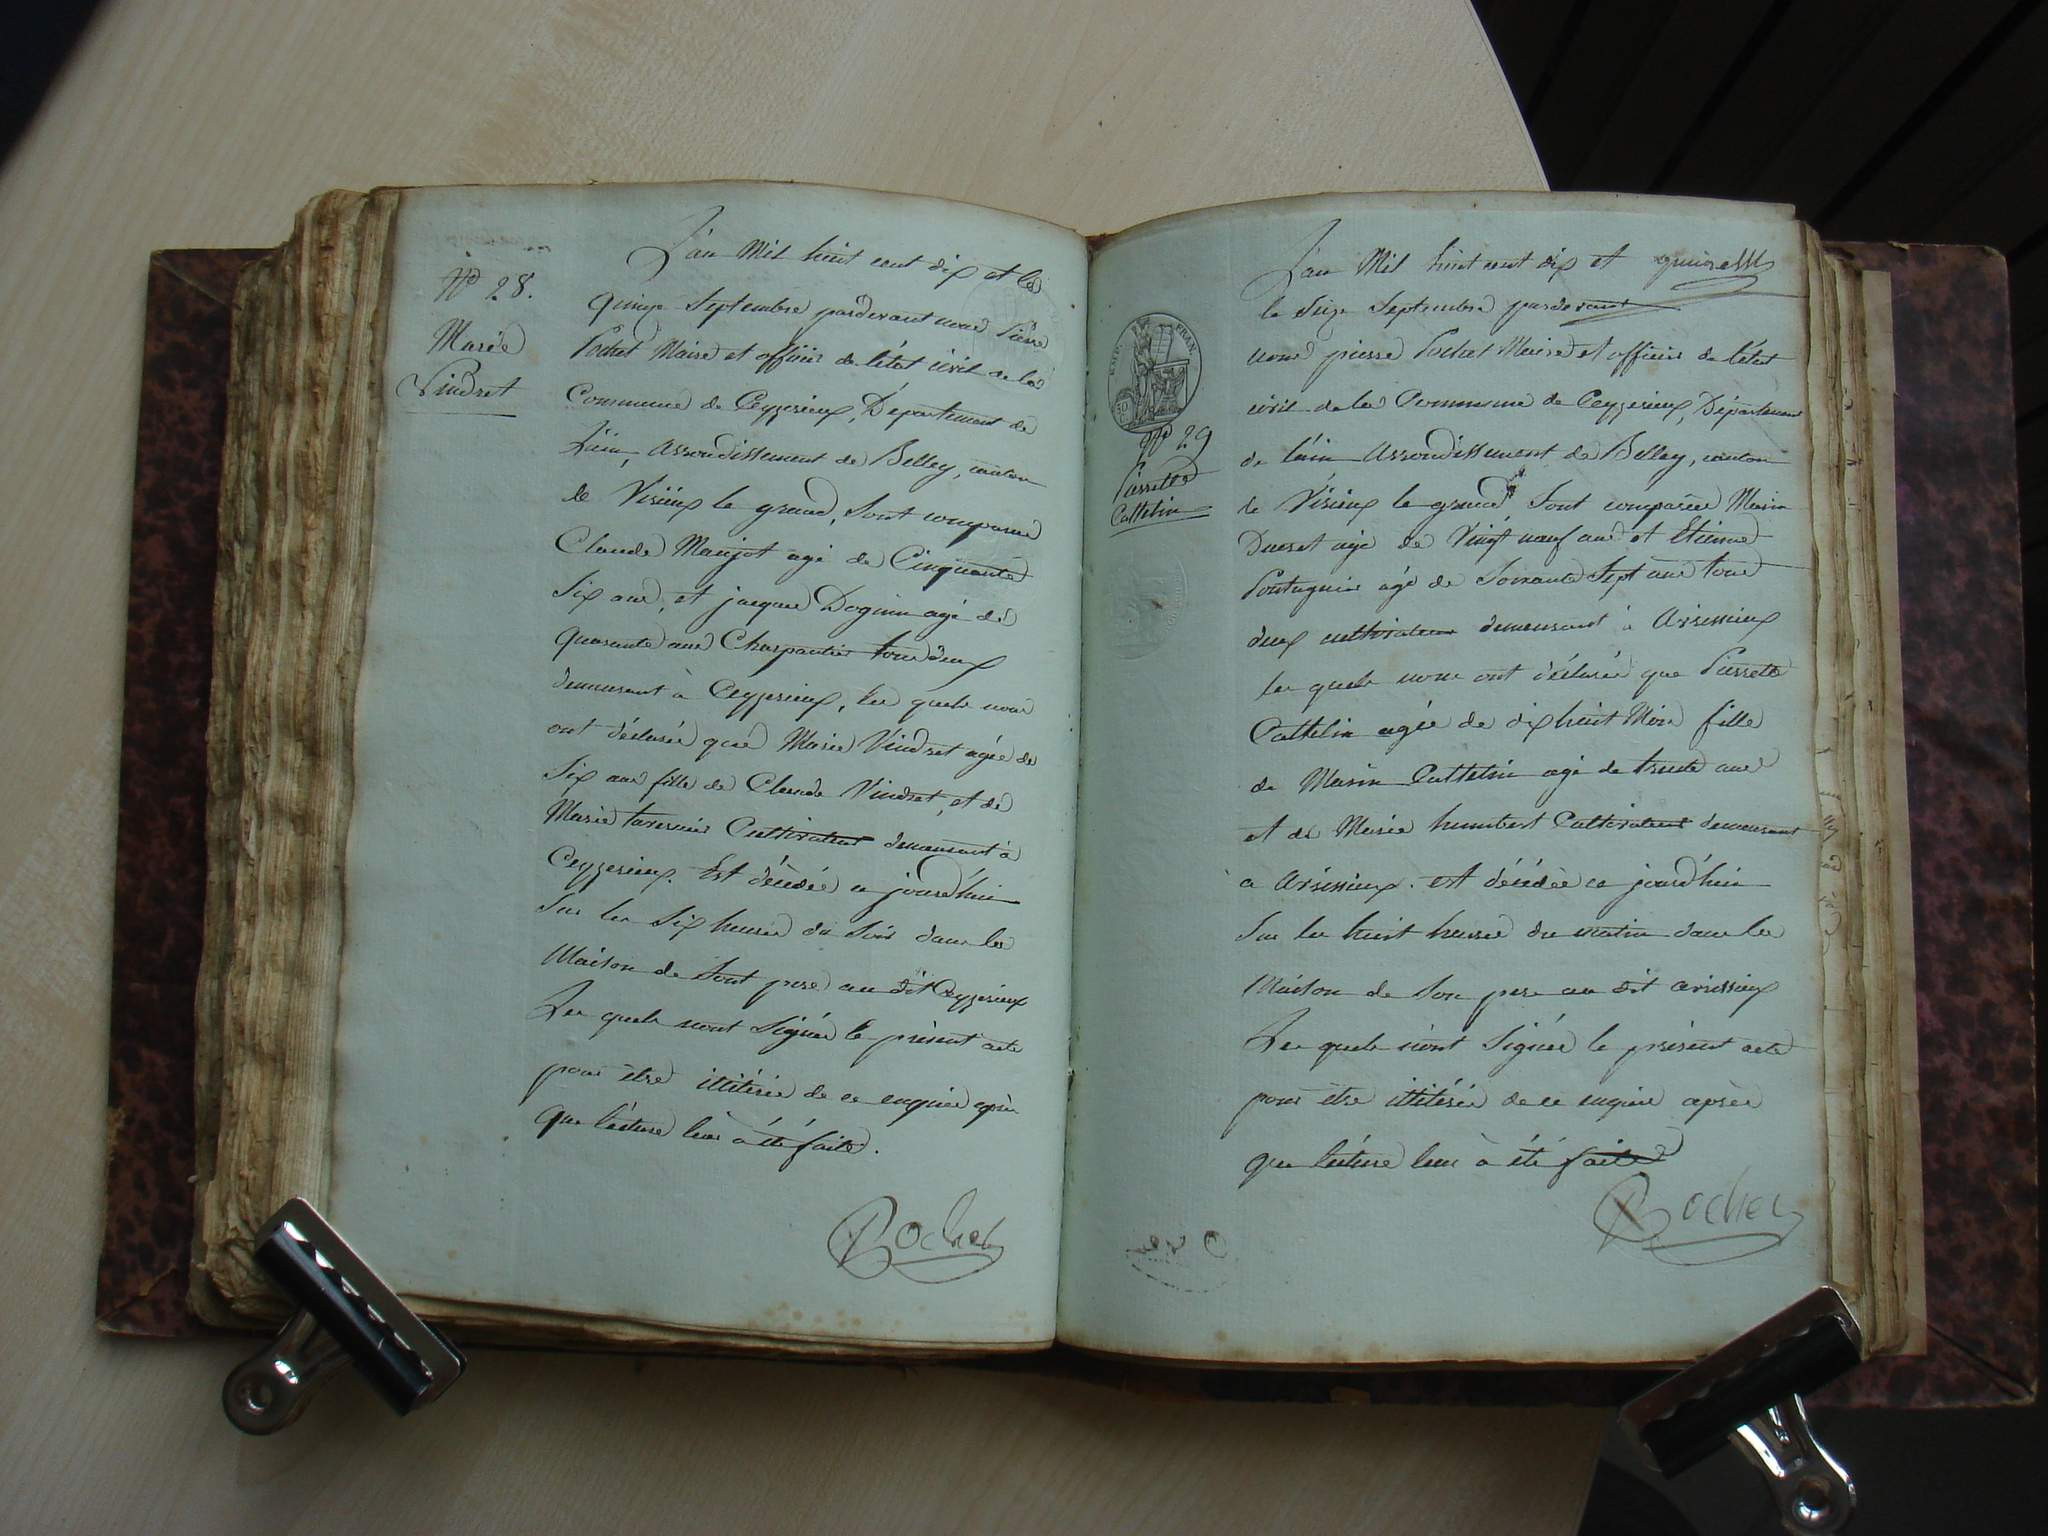 N° 28.
Marie
Vindret
L'an Mil huit cent dix et le
quinze Septembre pardevant nous Pierre
Pochet Maire et officier de l'état civil de la
Commune de Ceyzerieux, Département de
l'ain, arrondissement de Belley, canton
de Virieux le grand, Sont comparus
Claude Maujot agé de Cinquante
Six ans, et jacques Doguin agé de
quarante ans Charpantier tous deux
demeurant à Ceyzerieux, les quels nous
ont déclarés que Marie Vindret agée de
Six ans fille de Claude Vindret, et de
Marie tavernier Cultivateur demeurant à
Ceyzerieux. Est décédée ce jourd'hui
Sur les Six heures du Soir dans la
Maison de Sont pere au dit Ceyzerieux
Les quels n'ont Signés le présent acte
pour être ittitérés de ce enquis après
que lécture leur à été faite.
Rochet
N° 29
Pierrette
Cattelin
L'an Mil huit cent dix et
le Seize Septembre pardevant
nous pierre Pochet Maire et officier de l'état
civil de la Commune de Ceyzerieux, Département
de l'ain arrondissement de Belley, canton
de Virieux le grand Sont comparus Marin
Ducret agé de Vingt neuf ans et Etienne
Portuguier agé de Soixante Sept ans tous
deux cultivateur demeurant à Avrissieux
les quels nous ont déclarés que Pierrette
Cattelin agée de dix huit Mois fille
de Marin Cattelin agé de trente ans
et de Marie humbert Cultivateur demeurant
a Avrissieux. est décédée ce jourd'hui
Sur les huit heures du matin dans la
Maison de Son pere au dit avrissieux
Les quels n'ont Signés le présent acte
pour être ittitérés de ce enquis après
que lécture leur à été faite
Rochet